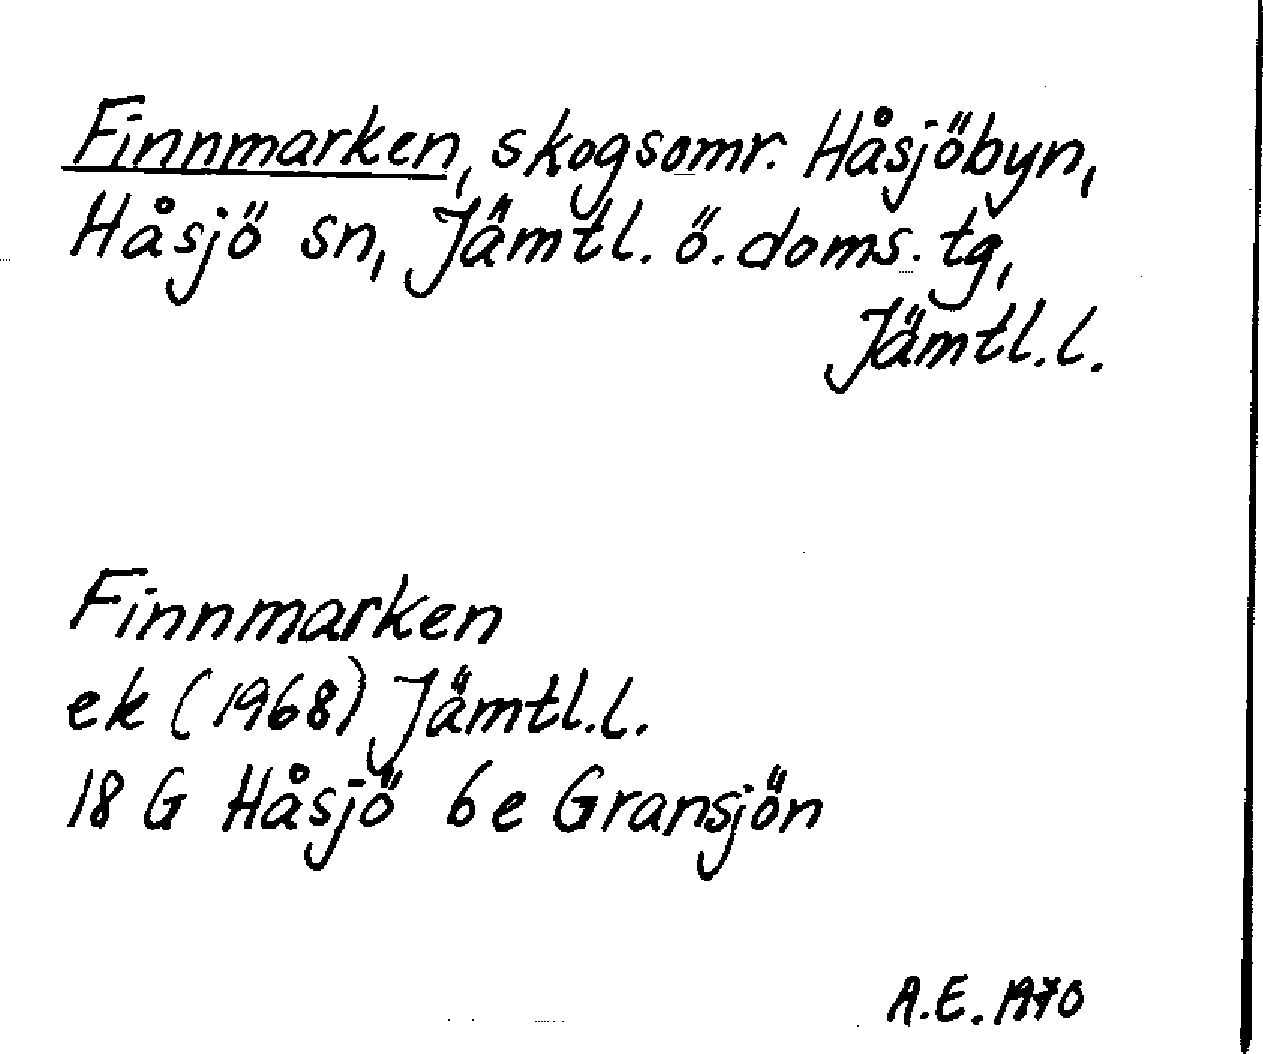 Finnmarken, skogsomr. Håsjöbyn,
Håsjö sn, Jämtl. ö. doms. tg,
Jämtl. l.
Finnmarken
ek (1968) Jämtl. l.
18 G Håsjö 6e Gransjön
A.E. 1970